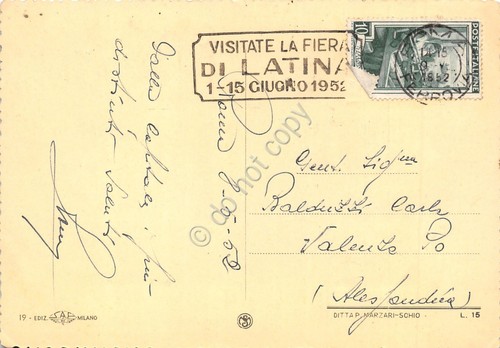 VISITATE LA FIERA
DI LATINA
1-15 GIUGNO 1952
POSTE ITALIANE
ROMA
FERROVIA
Roma 8-5-52
Dalla Capitale i più
distinti saluti
Gent. Sig.na
Balduzzi Carla
Valenza Po
(Alessandria)
do not copy
19 - EDIZ. S.A.F. MILANO
DITTA P. MARZARI-SCHIO
L. 15